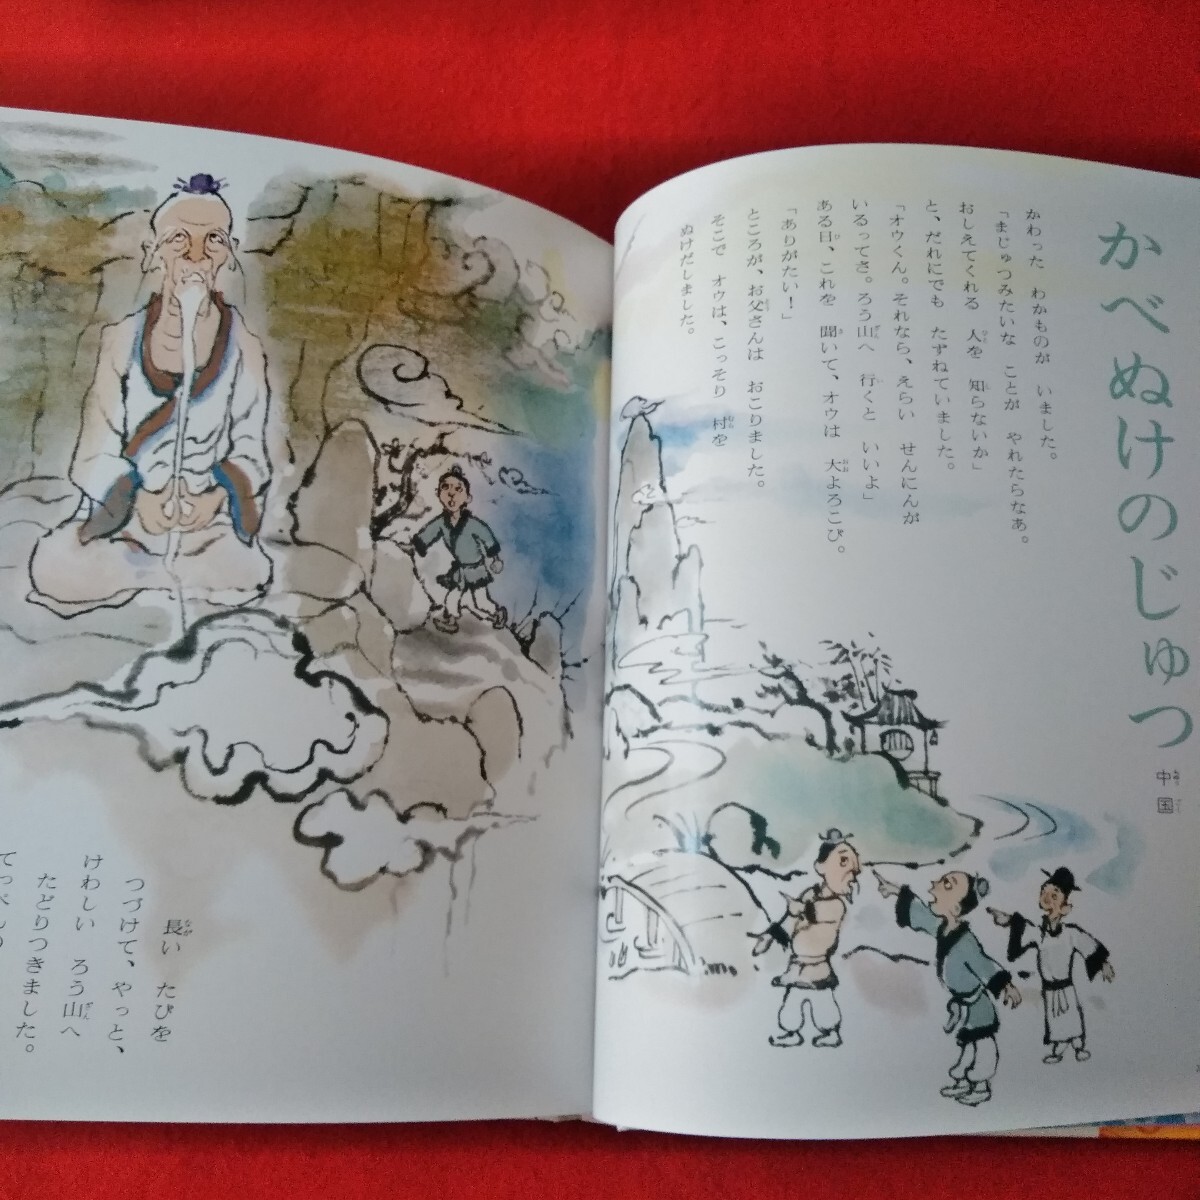 かべぬけのじゅつ
中国
かわった わかものが いました。
「まじゅつみたいな ことが やれたらなあ。
おしえてくれる 人を 知らないか」
と、だれにでも たずねていました。
「オウくん。それなら、えらい せんにんが
いるってさ。ろう山へ 行くと いいよ」
ある日、これを 聞いて、オウは 大よろこび。
「ありがたい!」
ところが、お父さんは おこりました。
そこで オウは、こっそり 村を
ぬけだしました。
長い たびを
つづけて、やっと、
けわしい ろう山へ
たどりつきました。
てっぺんの